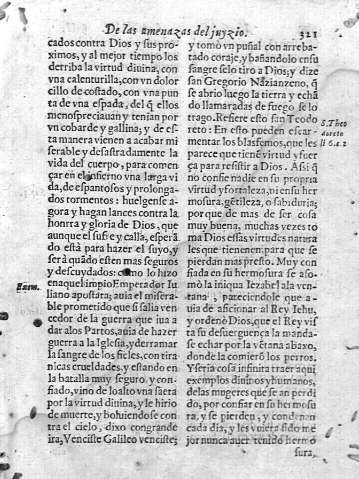 De las amenazas del juyzio. 321
cados contra Dios y sus pro
ximos, y al mejor tiempo los
derriba la virtud diuina, con
vna calenturilla, con vn dolor
cillo de costado, con vna pun
ta de vna espada, del q̃ ellos
menospreciauan y tenian por
vn cobarde y gallina; y de es-
ta manera vienen a acabar mi
serable y desastradamente la
vida del cuerpo, para comen
çar en el infierno vna larga vi
da, de espantosos y prolonga-
dos tormentos: huelgense a-
gora y hagan lances contra la
honrra y gloria de Dios, que
aunque el sufre y calla, esperã
do està para hazer el suyo, y
serà quãdo esten mas seguros
y descuydados: como lo hizo
Exem. en aquel impio Emperador Iu
liano apostata; auia el misera-
ble prometido que si salia ven
cedor de la guerra que iua a
dar a los Partos, auia de hazer
guerra a la Iglesia, y derramar
la sangre de los fieles, con tira
nicas crueldades, y estando en
la batalla muy seguro, y con-
fiado, vino de lo alto vna saeta
por la virtud diuina, y le hirio
de muerte, y boluiendose con
tra el cielo, dixo con grande
ira, Venciste Galileo venciste;
y tomò vn puñal con arreba-
tado coraje, y bañandolo en su
sangre se lo tiro a Dios; y dize
san Gregorio Nazianzeno, q̃
se abrio luego la tierra y echã
do llamaradas de fuego se lo
trago. Refiere esto san Teodo
reto: En esto pueden escar-
mentar los blasfemos, que les
parece que tienẽ virtud y fuer
ça para resistir a Dios. Assi q̃
no confie nadie en su propria
virtud y fortaleza, ni en su her
mosura, gẽtileza, o sabiduria;
porque de mas de ser cosa
muy buena, muchas vezes to
ma Dios essas virtudes natura
les que tienen en para que se
pierdan mas presto. Muy con
fiada en su hermosura se aso-
mò la iniqua Iezabel a la ven-
tana, pareciendole que a-
uia de aficionar al Rey Iehu,
y ordenò Dios, que el Rey vis
ta su desuerguença la manda-
se echar por la vẽtana abaxo,
donde la comierõ los perros.
Y seria cosa infinita traer aqui
exemplos diuinos y humanos,
de las mugeres que se an perdi
do, por confiar en su hermosu
ra, y se pierden, y condenan
cada dia, y les vuiera sido me
jor nunca auer tenido hermo
sura,
S. Theo
doreto
li 6. c. 2